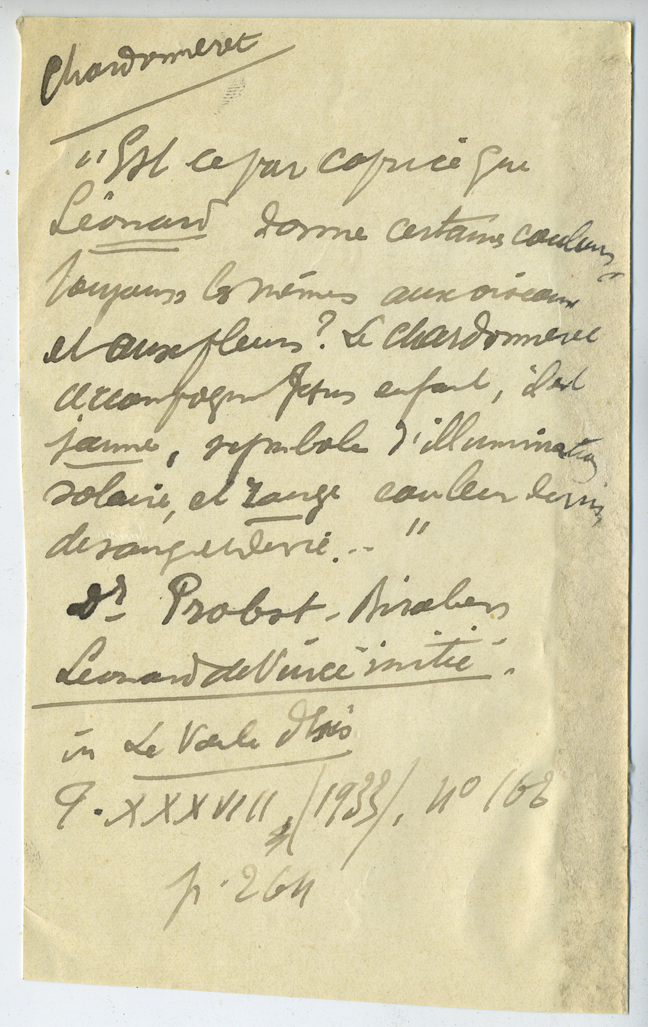 Chardonneret
"Est ce par caprice que
Léonard donne certaines couleurs
toujours les mêmes aux oiseaux
et aux fleurs? Le chardonneret
accompagne Jésus enfant, il est
jaune, symbole d'illumination
solaire, et rouge couleur de vin,
de sang et de vie... "
Dr Probst-Biraben
Léonard de Vinci initié.
in Le Voile d'Isis
T. XXXVIII, (1933), no 162
p. 264